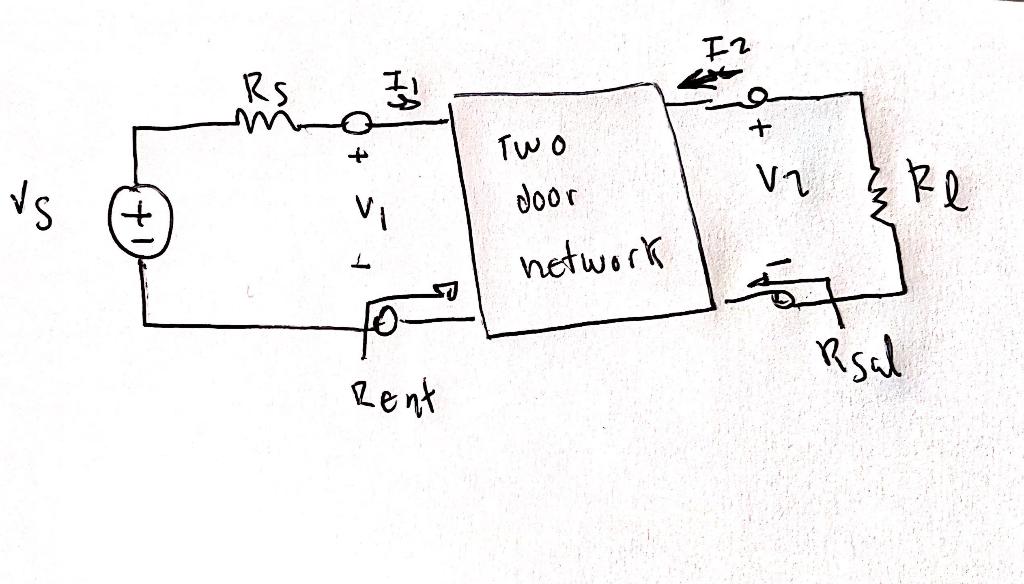 Rs
I1
I2
Vs
+
-
+
V1
-
Two
door
network
+
V2
-
Rl
Rent
Rsal